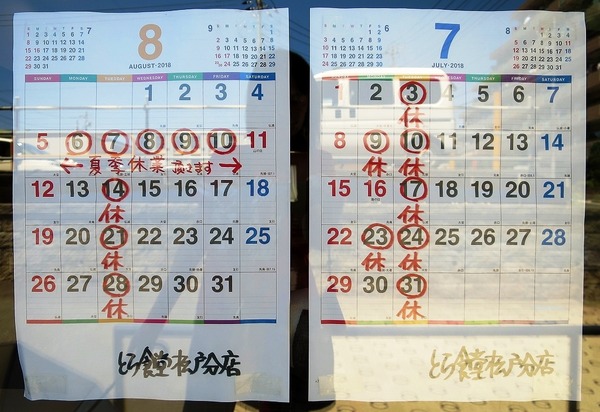 8
AUGUST・2018
7
9
SUNDAY MONDAY TUESDAY WEDNESDAY THURSDAY FRIDAY SATURDAY
1 2 3 4
5 6 7 8 9 10 11
← 夏季休業 頂きます →
12 13 14 15 16 17 18
休
19 20 21 22 23 24 25
休
26 27 28 29 30 31
休
とら食堂松戸分店
7
JULY・2018
6
8
SUNDAY MONDAY TUESDAY WEDNESDAY THURSDAY FRIDAY SATURDAY
1 2 3 4 5 6 7
休
8 9 10 11 12 13 14
休 休
15 16 17 18 19 20 21
休
22 23 24 25 26 27 28
休 休
29 30 31
休
とら食堂松戸分店